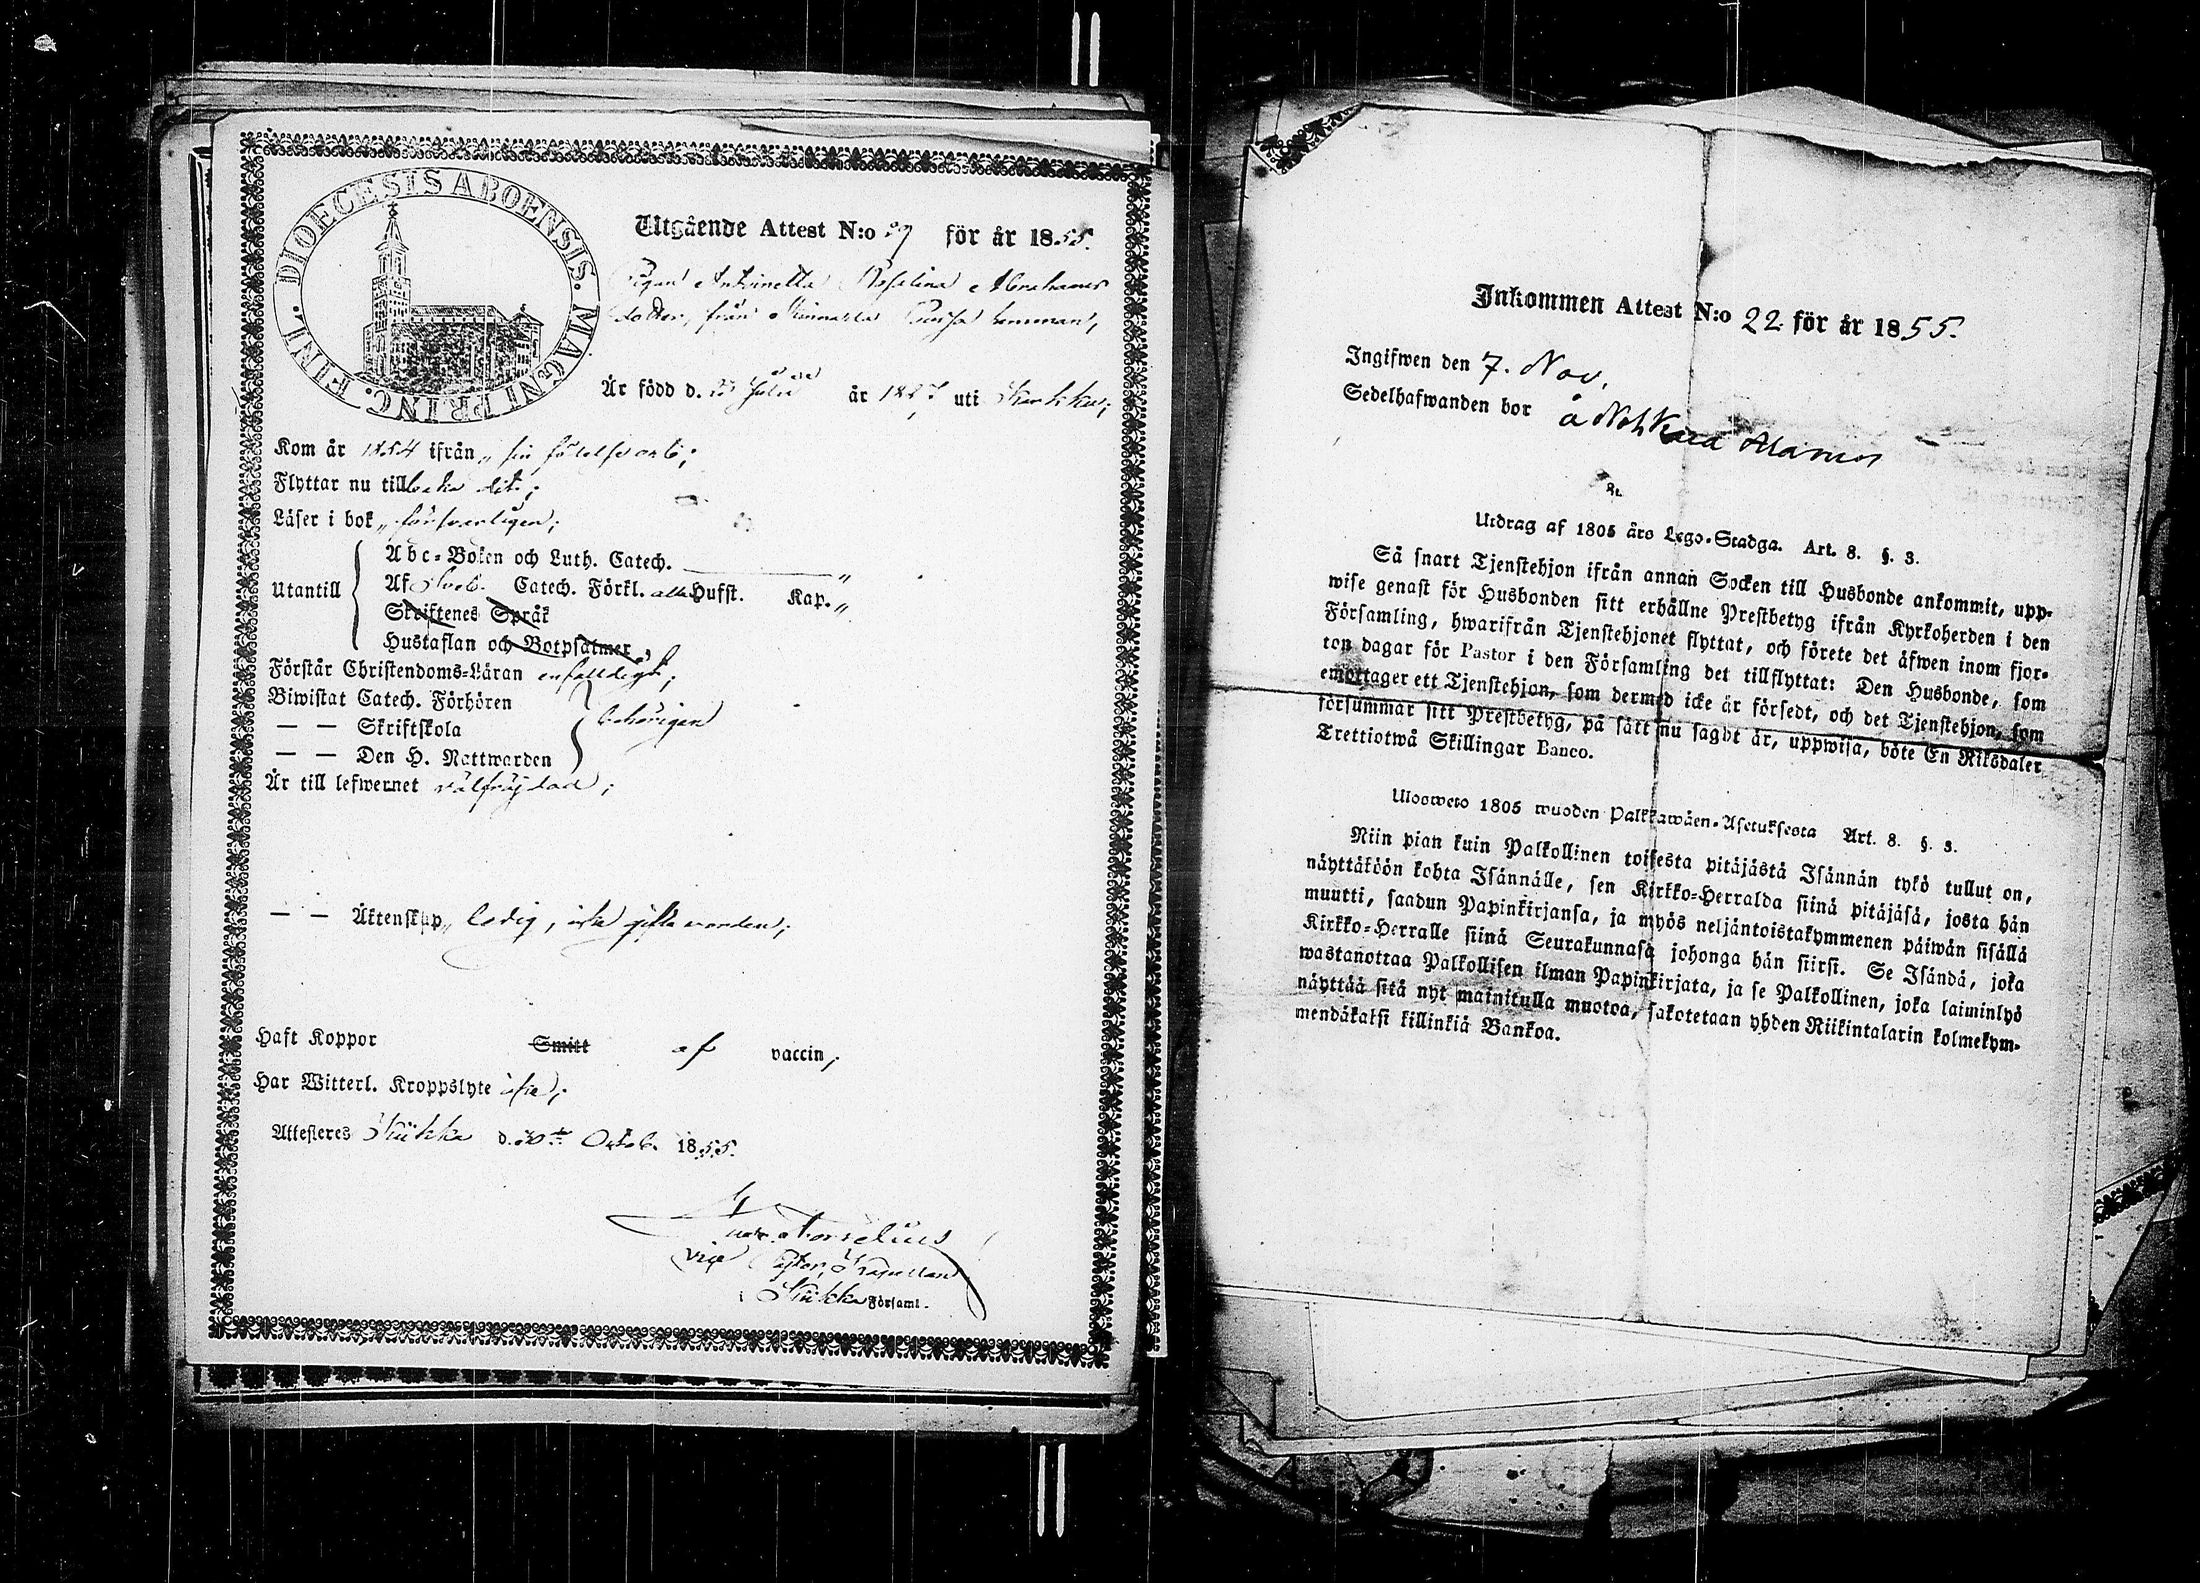 DIOECESIS ABOENSIS. MAGNI PRINC. FINL.
Utgående Attest N:o 29 för år 1855.
Pigan Antoinetta Rosalina Abrahams
dotter, från hemman,
Är född d. Julii år 18 7 uti
Kom år 1854 ifrån „ sin födelseort;
Flyttar nu tillbaka dit;
Läser i bok „ försvarligen;
Utantill
Abc-Boken och Luth. Catech. „
Af Sveb. Catech. Förkl. alla Hufst. Kap. „
Skriftenes Språk
Hustaflan och Botpsalmer,
Förstår Christendoms-Läran enfaldigt;
Biwistat Catech. Förhören
— — Skriftskola
behörigen
— — Den H. Nattwarden
Är till lefwernet välfräjdad;
— — Äktenskap „ Ledig, icke gift vorden;
Haft Koppor Smitt af vaccin;
Har Witterl. Kroppslyte icke;
Attesteras Kiikka d. 30de Octob. 1855.
vice Pastor, Kapellan
i Kiikka Församl.
Inkommen Attest N:o 22 för år 1855.
Ingifwen den 7. Nov.
Sedelhafwanden bor å
Utdrag af 1805 års Lego-Stadga. Art. 8. §. 3.
Så snart Tjenstehjon ifrån annan Socken till Husbonde ankommit, upp-
wise genast för Husbonden sitt erhållne Prestbetyg ifrån Kyrkoherden i den
Församling, hwarifrån Tjenstehjonet flyttat, och förete det äfwen inom fjor-
ton dagar för Pastor i den Församling det tillflyttat: Den Husbonde, som
emottager ett Tjenstehjon, som dermed icke är försedt, och det Tjenstehjon, som
försummar sitt Prestbetyg, på sätt nu sagdt är, uppwisa, böte En Riksdaler
Trettiotwå Skillingar Banco.
Uloswets 1805 wuoden Palkkawäen-Asetuksesta Art. 8. §. 3.
Niin pian kuin Palkollinen toisesta pitäjästä Isännän tykö tullut on,
näyttäköön kohta Isännälle, sen Kirkko-Herralda siinä pitäjäsä, josta hän
muutti, saadun Papinkirjansa, ja myös neljäntoistakymmenen päiwän sisällä
Kirkko-Herralle siinä Seurakunnasa johonga hän siirsi. Se Isändä, joka
wastanottaa Palkollisen ilman Papinkirjata, ja se Palkollinen, joka laiminlyö
näyttää sitä nyt mainitulla muotoa, sakotetaan yhden Riikintalarin kolmekym-
mendäkaksi killinkiä Bankoa.